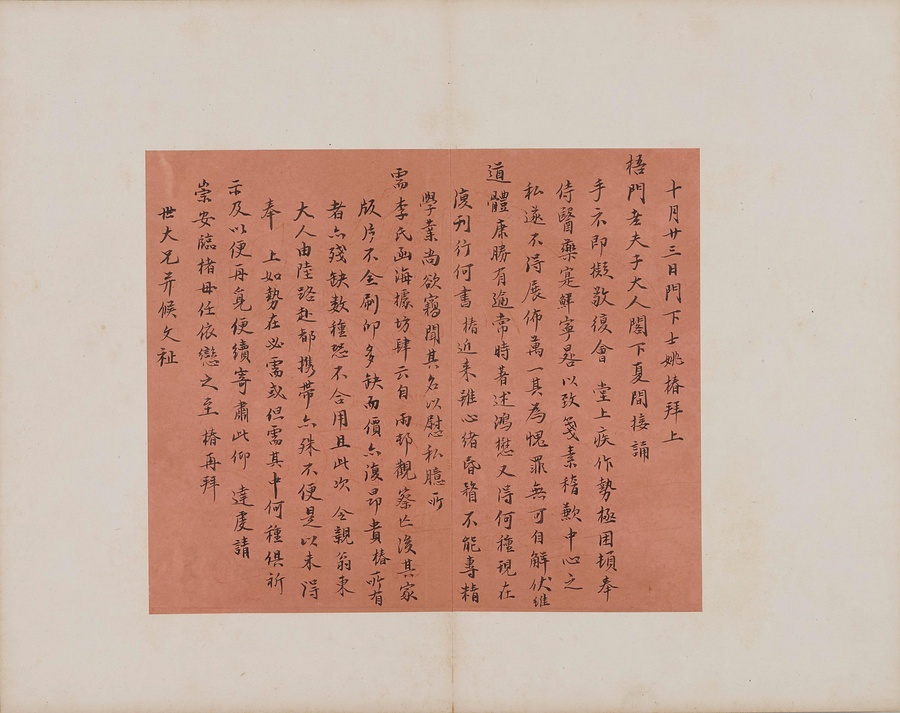 十月廿三日門下士姚椿拜上
梧門老夫子大人閣下夏間接誦
手示即擬敬復會 堂上疾作勢極困頓奉
侍醫藥寔鮮寧晷以致箋素稽歉中心之
私遂不得展佈萬一其為愧罪無可自解伏維
道體康勝有逾常時著述鴻懋又得何種現在
復刊行何書椿近来雖心緒昏瞀不能專精
學業尚欲竊聞其名以慰私臆所
需李氏函海據坊肆云自雨邨觀察亡後其家
版片不全刷印多缺而價亦復昂貴椿所有
者亦殘缺数種恐不合用且此次 令親翁東
大人由陸路赴都攜帶亦殊不便是以未得
奉 上如勢在必需或但需其中何種俱祈
示及以便再覓便續寄肅此仰 達虔請
崇安臨楮毋任依戀之至 椿再拜
世大兄并候文祉